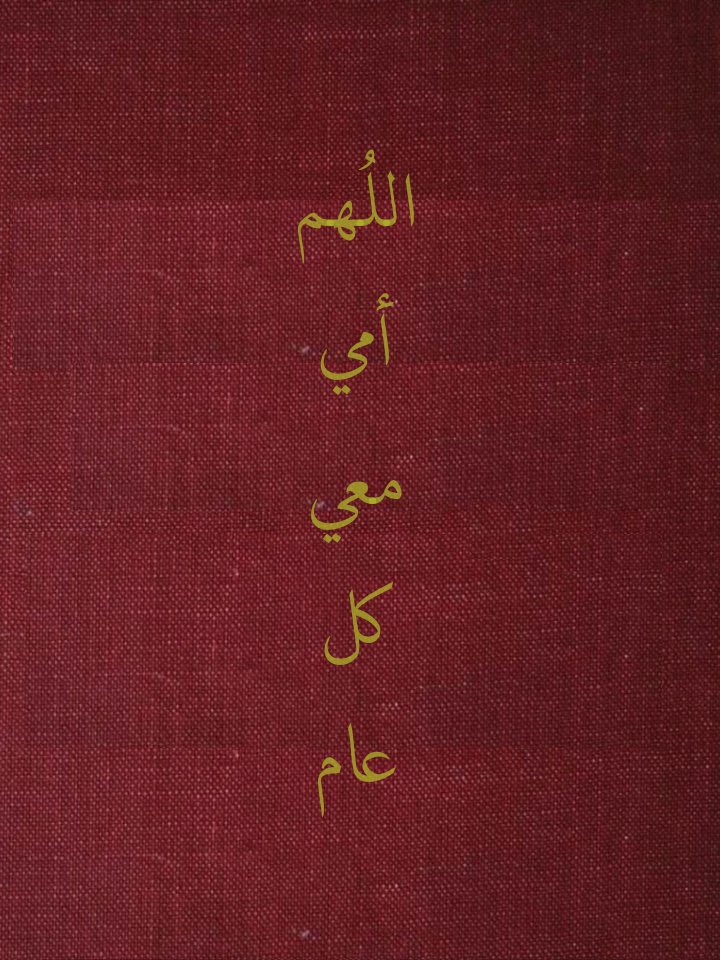 اللُهم
أمي
معي
كل
عام